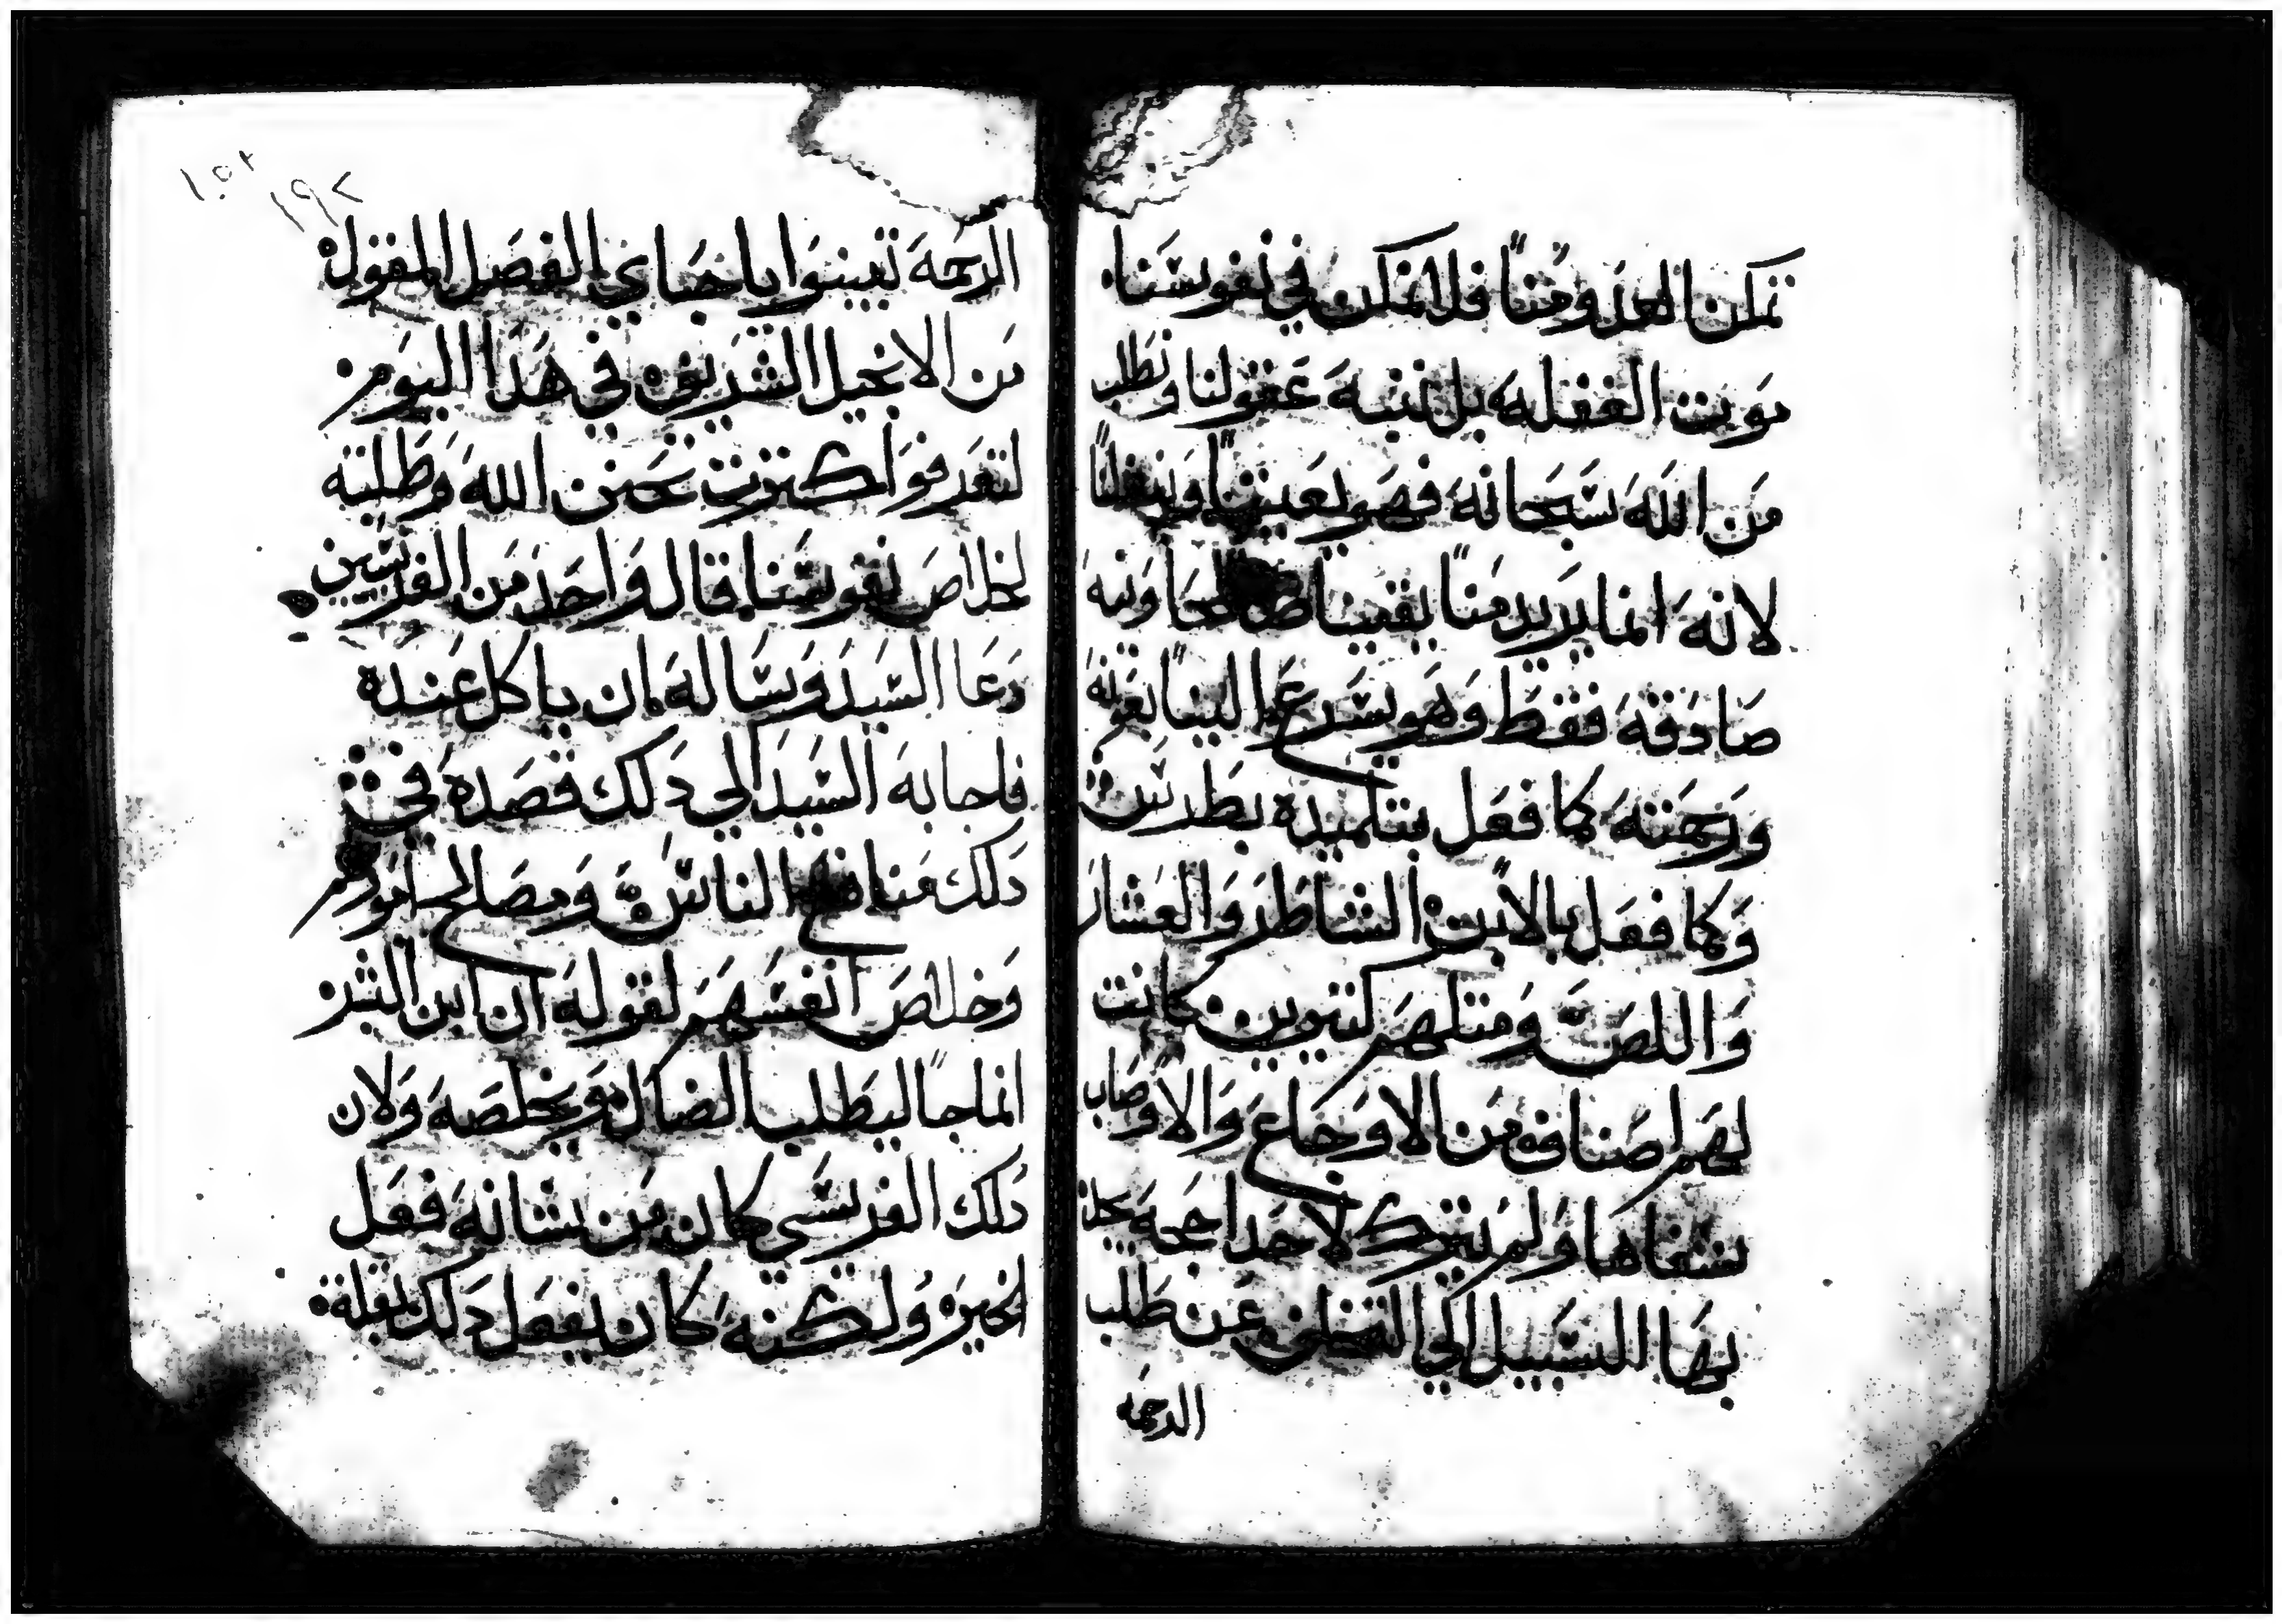 تمكن العدو منا فلا تمكن في نفوسنا
موت الغفله بل ننبه عقولنا ونطلب
من الله سبحانه فهو يعيننا وينقلنا
لانه انما يريد منا يقينا محاونيه
صادقه فقط وهو يسرع الينا بعونه
ورحمته كما فعل بتلميده بطرس
وكما فعل بالابن الشاطر والعشار
واللص ومتلهم كتيرين كانت
لهم اصناف من الاوجاع والاوصاب
شفاها ولم يترك لاحد حجه يجد
بها السبيل الي التخلف عن طلب
الرحمه
١٥٢
١٩٢
الرحمه تبينوا ياحباي الفصل المقول
من الانجيل الشريف في هدا اليوم
لتعرفوا كترت تحنن الله وطلبته
لخلاص نفوسنا قال واحد من الفريسين
دعا السيد وساله ان ياكل عنده
فاجابه السيد الي دلك قصده في
دلك منافع الناس ومصالح امورهم
وخلاص انفسهم لقوله ان ابن البشر
انما جا ليطلب الضال ويخلصه ولان
دلك الفريسي كان من شانه فعل
الخيره ولكنه كان يفعل دلك بقلة